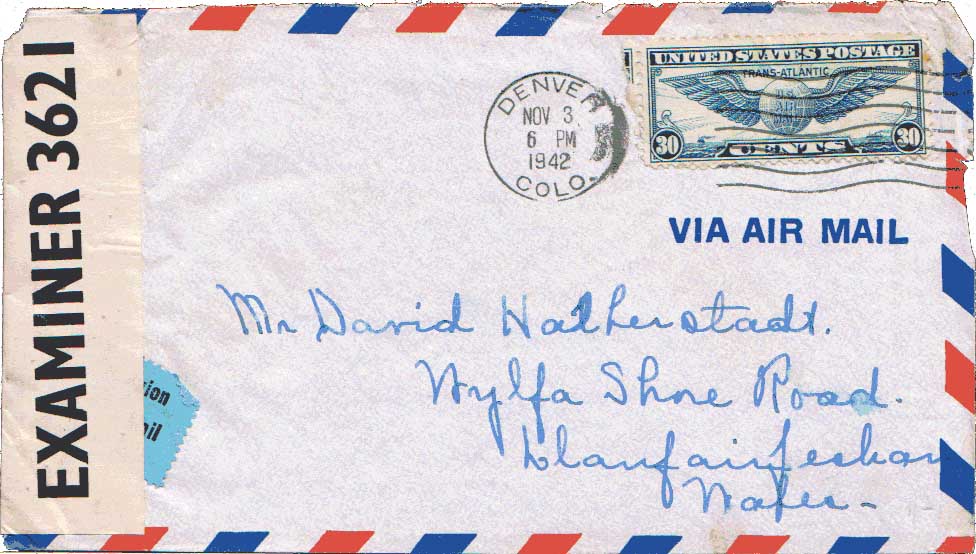 EXAMINER 3621
DENVER
NOV 3
6 PM
1942
COLO.
UNITED STATES POSTAGE
TRANS-ATLANTIC
AIR
MAIL
30 CENTS 30
VIA AIR MAIL
Mr David Halberstadt.
Wylfa Shore Road.
Llanfairfechan
Wales-
ion
ail